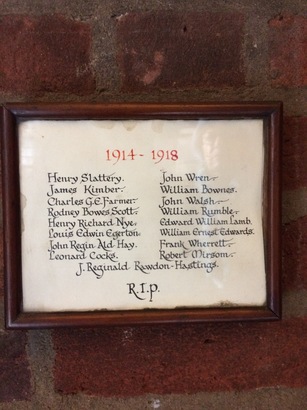 1914 - 1918
Henry Slattery.
James Kimber.
Charles G.E. Farmer.
Rodney Bowes Scott.
Henry Richard Nye.
Louis Edwin Egerton.
John Regin. Ald. Hay.
Leonard Cocks.
John Wren.
William Bownes.
John Walsh.
William Rumble.
Edward William Lamb.
William Ernest Edwards.
Frank Wherrett.
Robert Mirsom.
J. Reginald Rawdon-Hastings.
R.I.p.